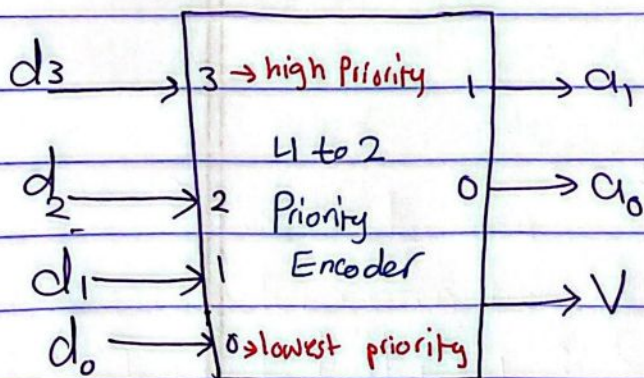 d3 3 → high Priority 1 a1
4 to 2
d2 2 Priority 0 a0
Encoder
d1 1 V
d0 0 → lowest priority